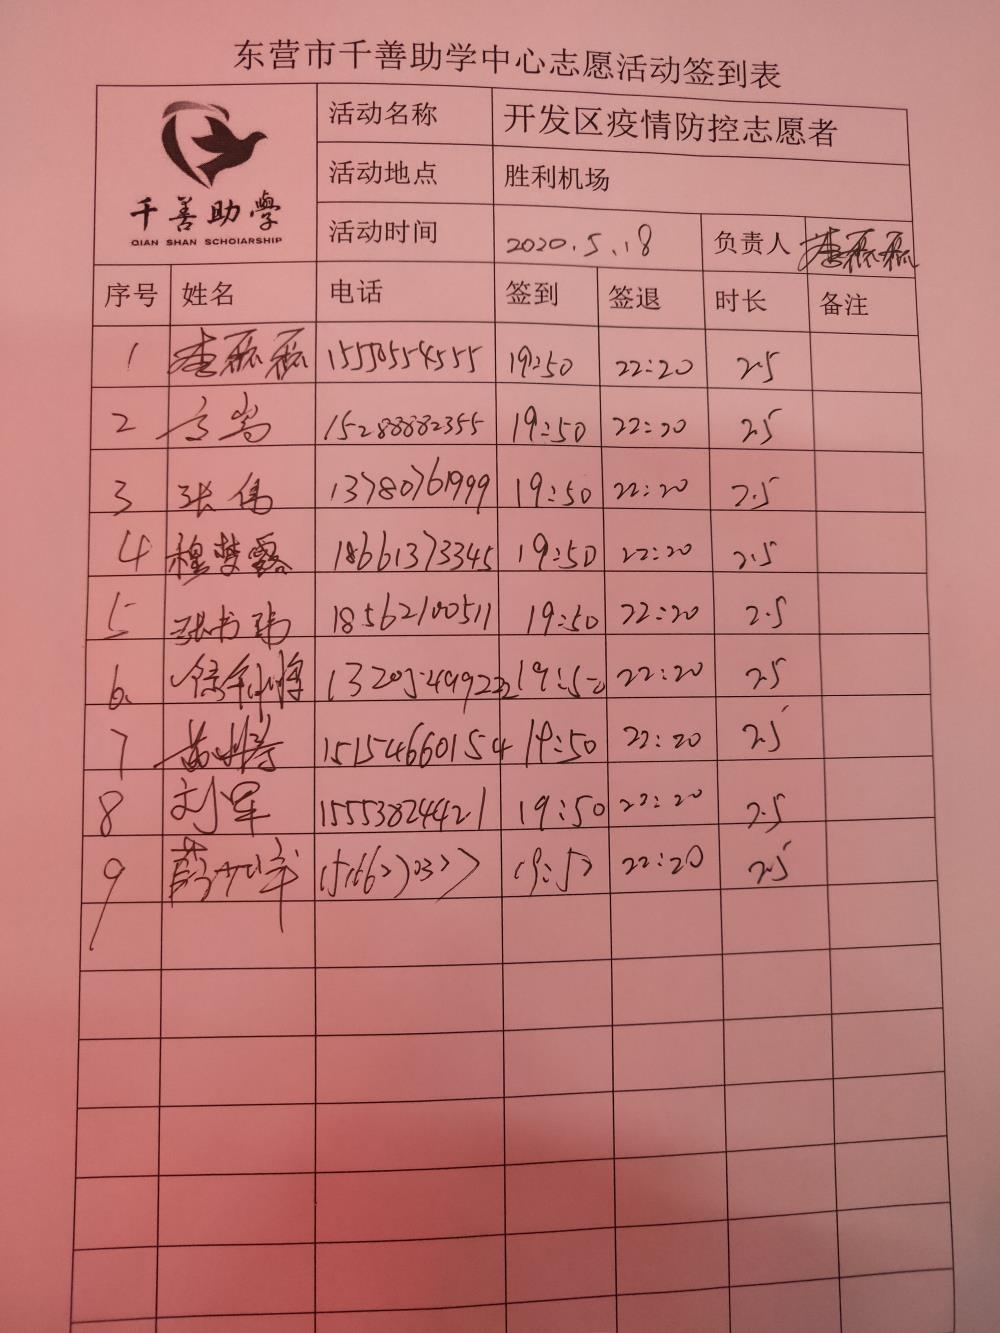 东营市千善助学中心志愿活动签到表
千善助學
QIAN SHAN SCHOIARSHIP
活动名称 开发区疫情防控志愿者
活动地点 胜利机场
活动时间 2020.5.18 负责人
序号 姓名 电话 签到 签退 时长 备注
1 15550554555 19:50 22:20 2.5
2 高嵩 15288882355 19:50 22:20 2.5
3 张伟 13780761999 19:50 22:20 2.5
4 穆梦露 18661373345 19:50 22:20 2.5
5 张书瑞 18562100511 19:50 22:20 2.5
6 19:50 22:20 2.5
7 15154660154 19:50 22:20 2.5
8 刘军 15553824421 19:50 22:20 2.5
9 22:20 2.5